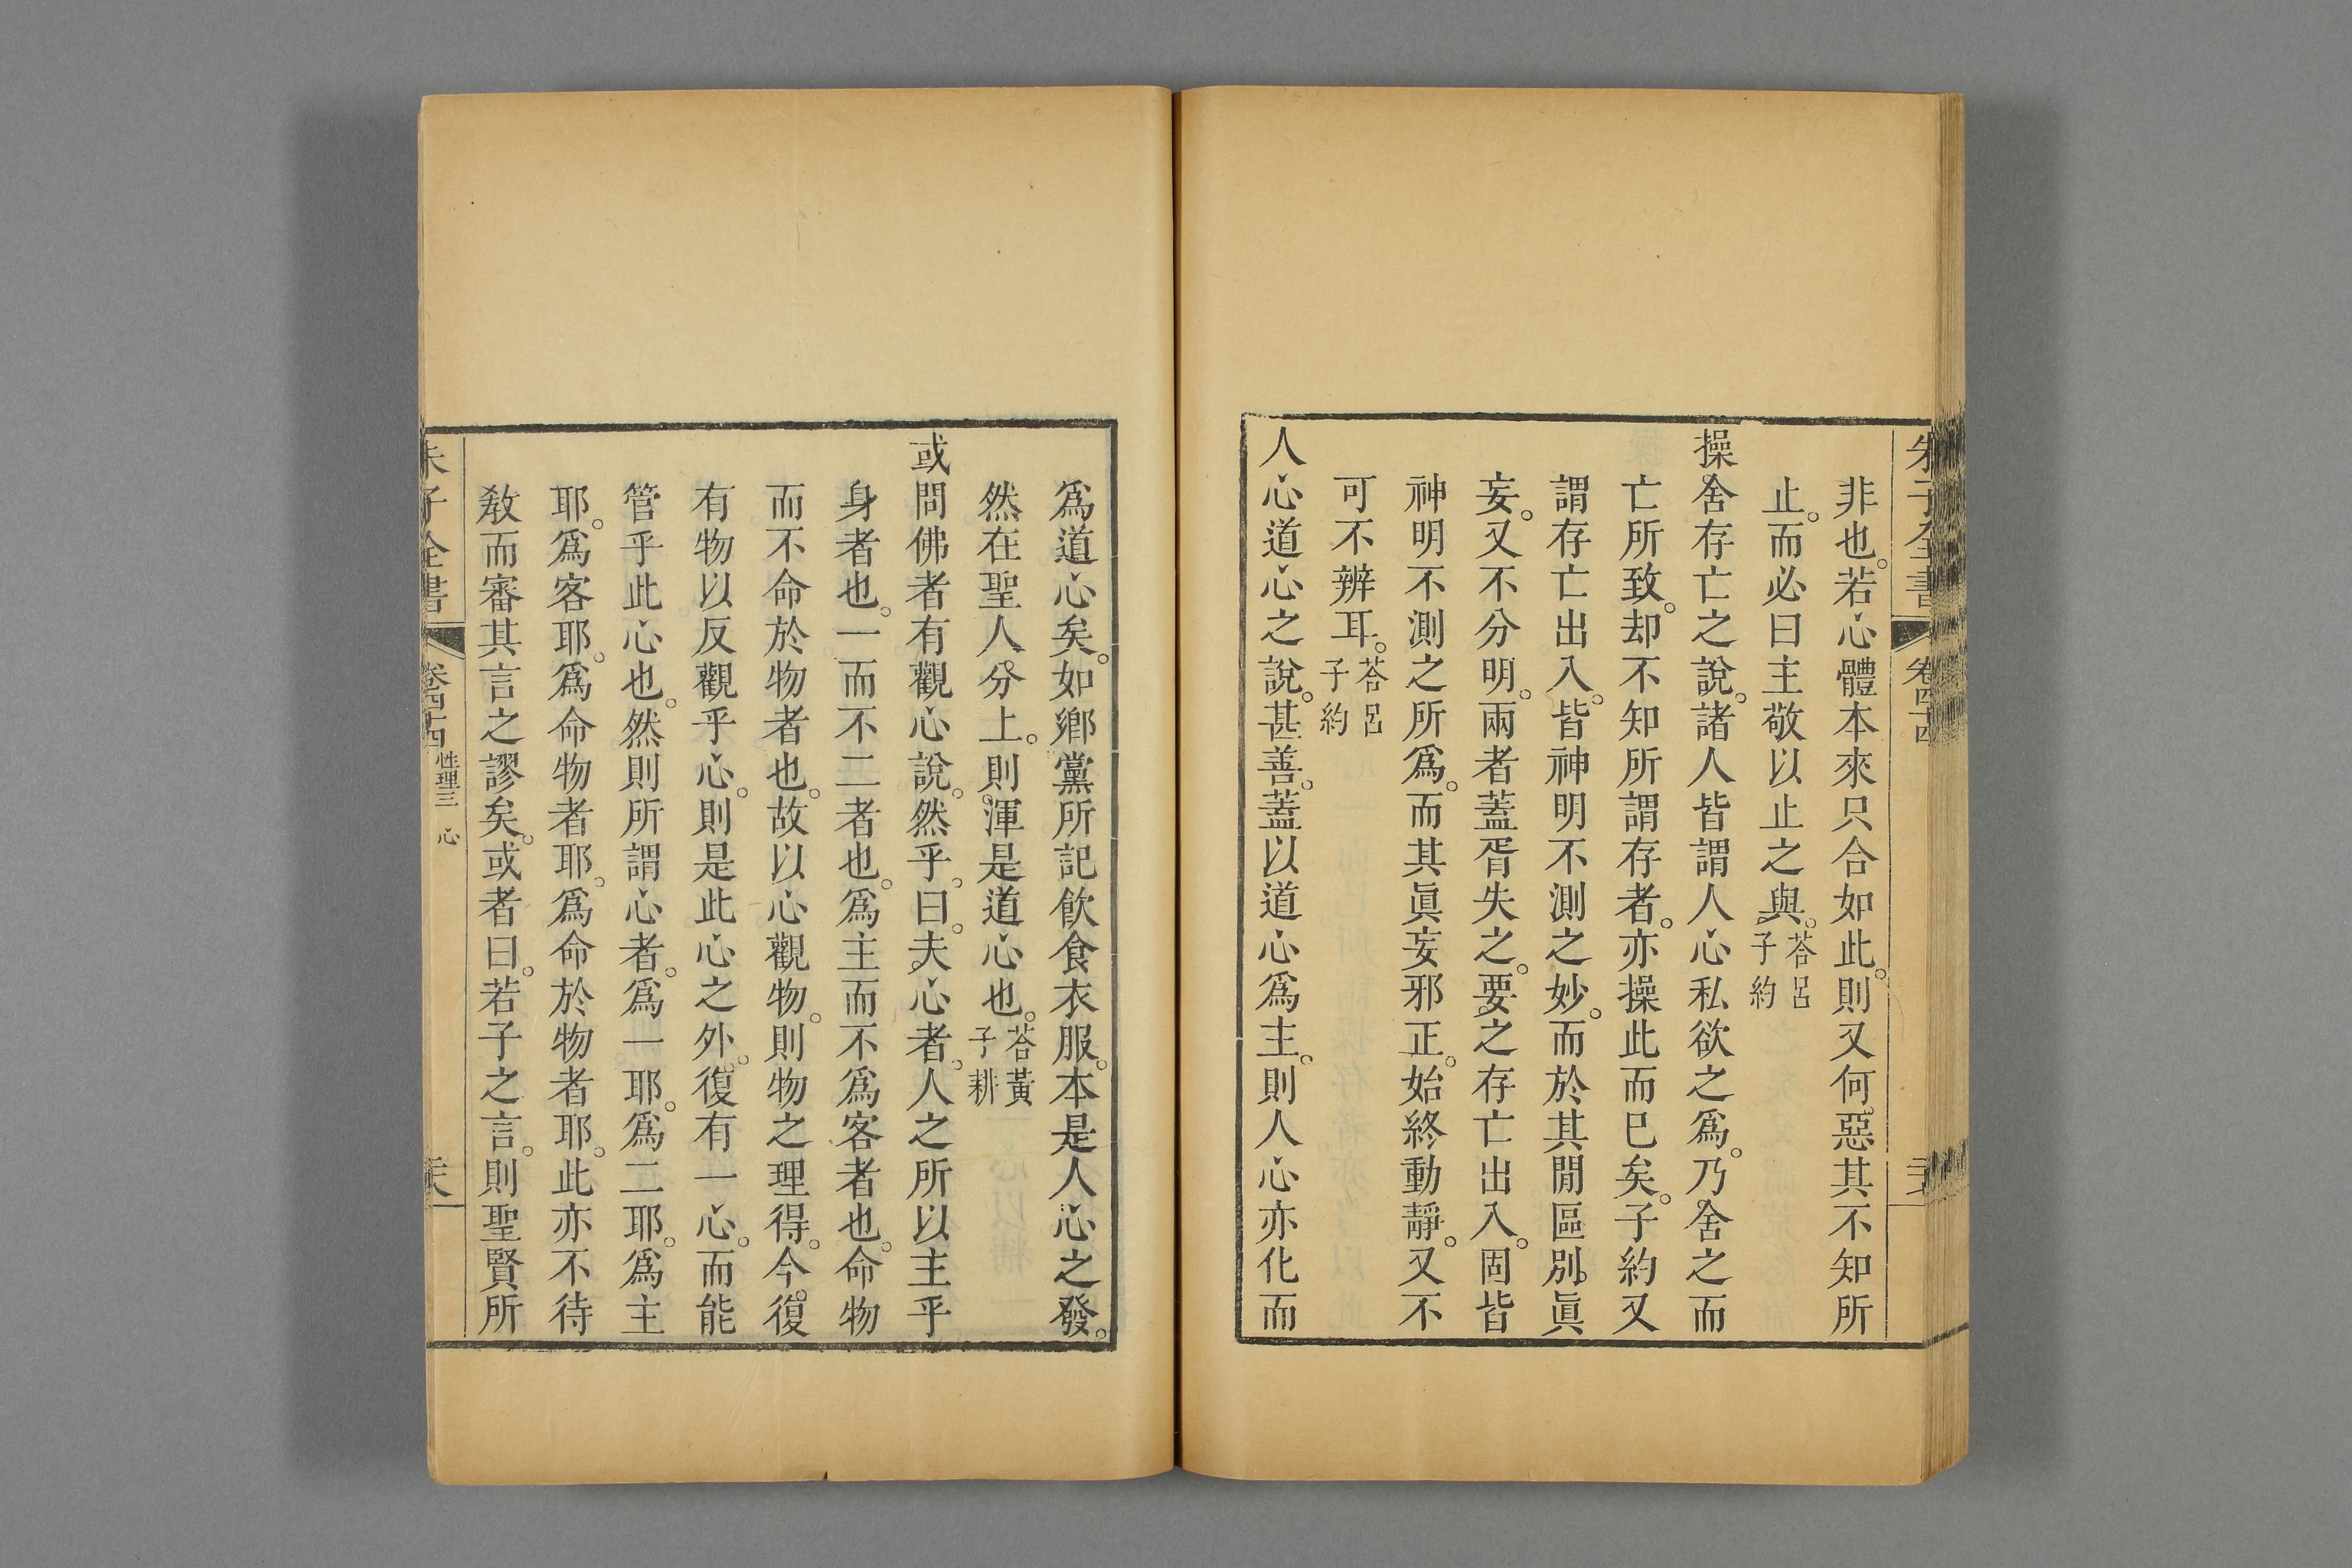 非也。若心體本來只合如此。則又何惡其不知所
止。而必曰主敬以止之與。荅呂子約
操舍存亡之說。諸人皆謂人心私欲之爲。乃舍之而
亡所致。却不知所謂存者。亦操此而已矣。子約又
謂存亡出入。皆神明不測之妙。而於其閒區別眞
妄。又不分明。兩者蓋胥失之。要之存亡出入。固皆
神明不測之所爲。而其眞妄邪正。始終動靜。又不
可不辨耳。荅呂子約
人心道心之說。甚善。蓋以道心爲主。則人心亦化而
爲道心矣。如鄉黨所記飮食衣服。本是人心之發。
然在聖人分上。則渾是道心也。荅黃子耕
或問佛者有觀心說。然乎。曰。夫心者。人之所以主乎
身者也。一而不二者也。爲主而不爲客者也。命物
而不命於物者也。故以心觀物。則物之理得。今復
有物以反觀乎心。則是此心之外。復有一心。而能
管乎此心也。然則所謂心者。爲一耶。爲二耶。爲主
耶。爲客耶。爲命物者耶。爲命於物者耶。此亦不待
敎而審其言之謬矣。或者曰。若子之言。則聖賢所
朱子全書 性理三 心